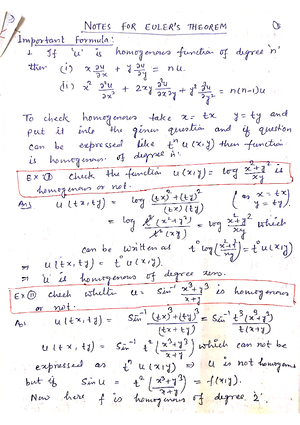 NOTES FOR EULER'S THEOREM
Important Formula:
1. If 'u' is homogenous function of degree 'n'
then (i) x ∂u/∂x + y ∂u/∂y = nu.
(ii) x² ∂²u/∂x² + 2xy ∂²u/∂x∂y + y² ∂²u/∂y² = n(n-1)u
To check homogenous take x = tx y = ty and
put it into the given question and if question
can be expressed like tⁿ u(x,y) then function
is homogenous of degree 'n'.
Ex (I) Check the function u(x,y) = log (x²+y²)/xy is
homogenous or not.
Ans u(tx,ty) = log ((tx)²+(ty)²)/((tx)(ty)) (as x = tx, y = ty).
= log t²(x²+y²)/t²(xy) = log (x²+y²)/xy which
can be written as t⁰ log((x²+y²)/xy) = t⁰u(x,y)
⇒ u(tx,ty) = t⁰ u(x,y)
⇒ 'u' is homogenous of degree zero.
Ex (II) check whether u = Sin⁻¹ (x³+y³)/(x+y) is homogenous
or not.
Ans. u(tx,ty) = Sin⁻¹ ((tx)³+(ty)³)/(tx+ty) = Sin⁻¹ t³(x³+y³)/t(x+y)
u(tx,ty) = Sin⁻¹ t²((x³+y³)/(x+y)) which can not be
expressed as tⁿ u(x,y) ⇒ u is not homogenous
but if Sin u = t²((x³+y³)/(x+y)) = f(x,y).
Now here f is homogenous of degree '2'.